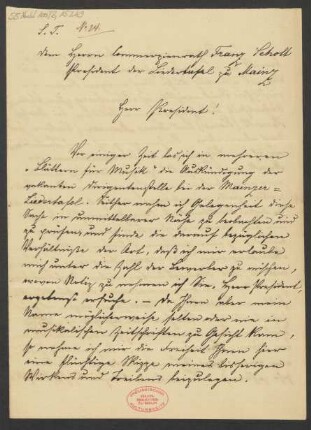 S. T.
Dem Herrn Commerzienrath Franz Schott
President der Liedertafel zu Mainz
Herr President!
Vor einiger Zeit las ich in mehreren
„Blättern für Musik" die Ankündigung der
vakanten Dirigentenstelle bei der Mainzer=
Liedertafel. Seither nahm ich Gelegenheit diese
Sache in unmittelbarer Nähe zu beobachten und
zu prüfen und finde die darauf bezüglichen
Verhältnisse der Art, daß ich mir erlaube
mich unter die Zahl der Bewerber zu mischen,
wovon Notiz zu nehmen ich Sie, Herr President,
ergebenst ersuche. — Da Ihnen aber mein
Name möglicherweise selten oder nie in
musikalischen Zeitschriften zu Gesicht kam,
so nehme ich mir die Freiheit Ihnen hier
eine flüchtige Skizze meines bisherigen
Wirkens und Treibens beizulegen.